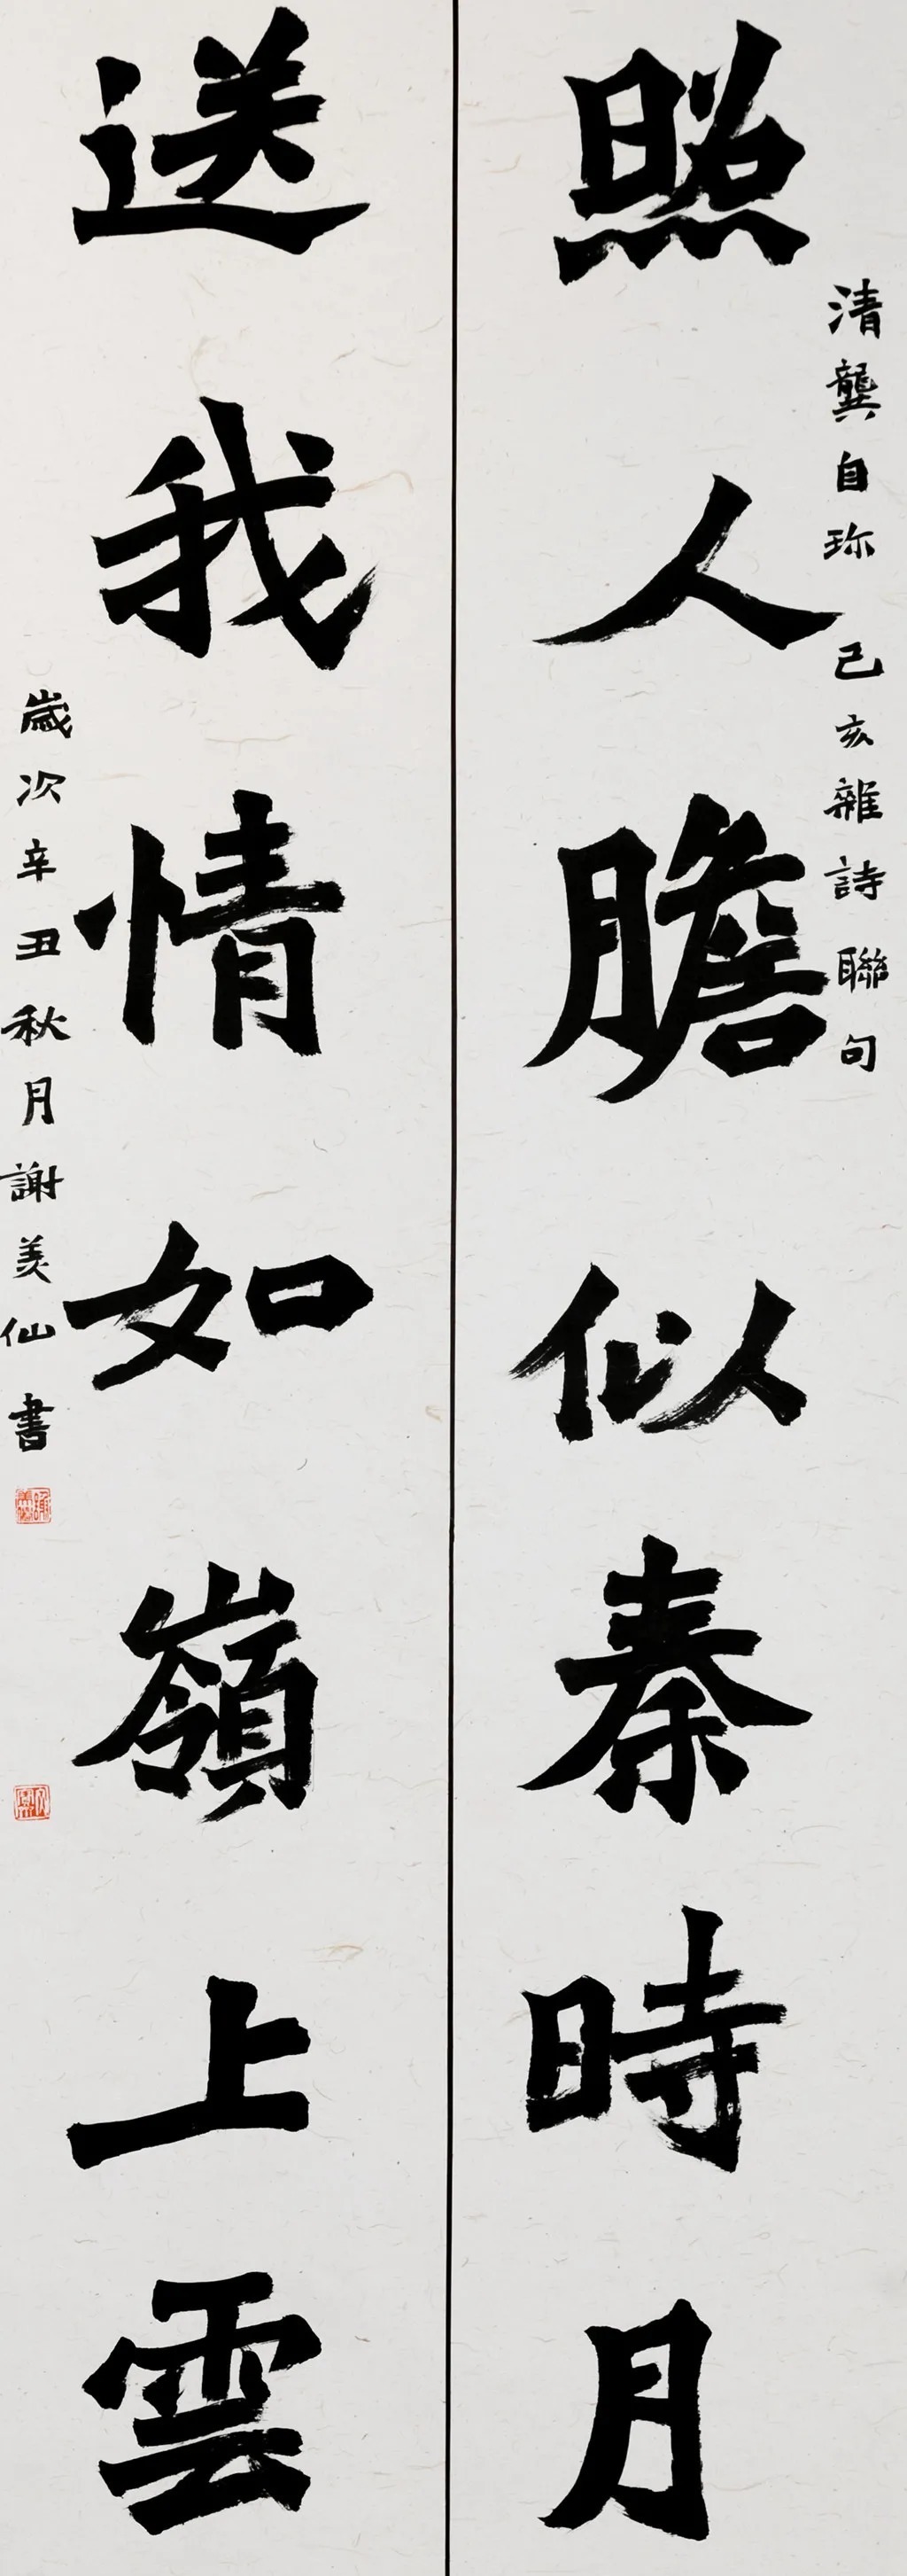 清龔自珍己亥雜詩聯句
照人膽似秦時月
送我情如嶺上雲
歲次辛丑秋月謝美仙書